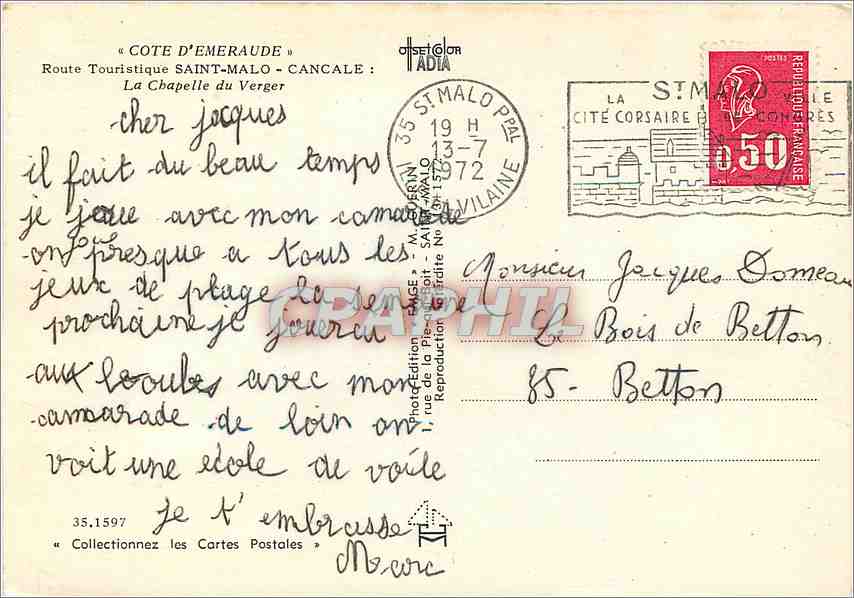 « COTE D'EMERAUDE »
Route Touristique SAINT-MALO - CANCALE :
La Chapelle du Verger
OFFSETCOLOR
IADIA
cher jacques
il fait du beau temps
je joue avec mon camarade
on joue presque a tous les
jeux de plage la semaine
prochaine je jouerai
aux boules avec mon
camarade de loin on
voit une école de voile
je t'embrasse
Marc
35.1597
« Collectionnez les Cartes Postales »
Photo-Edition « EMGE » - M. GUERIN
rue de la Pie-qui-Boit - SAINT-MALO
Reproduction interdite No
35 ST MALO PPAL
19 H
13-7
1972
VILAINE
ST MALO
LA VILLE
CITÉ CORSAIRE CONGRÈS
POSTES
REPUBLIQUE FRANÇAISE
0,50
Monsieur Jacques Domeau
Le Bois de Betton
85 - Betton
CPAPHIL